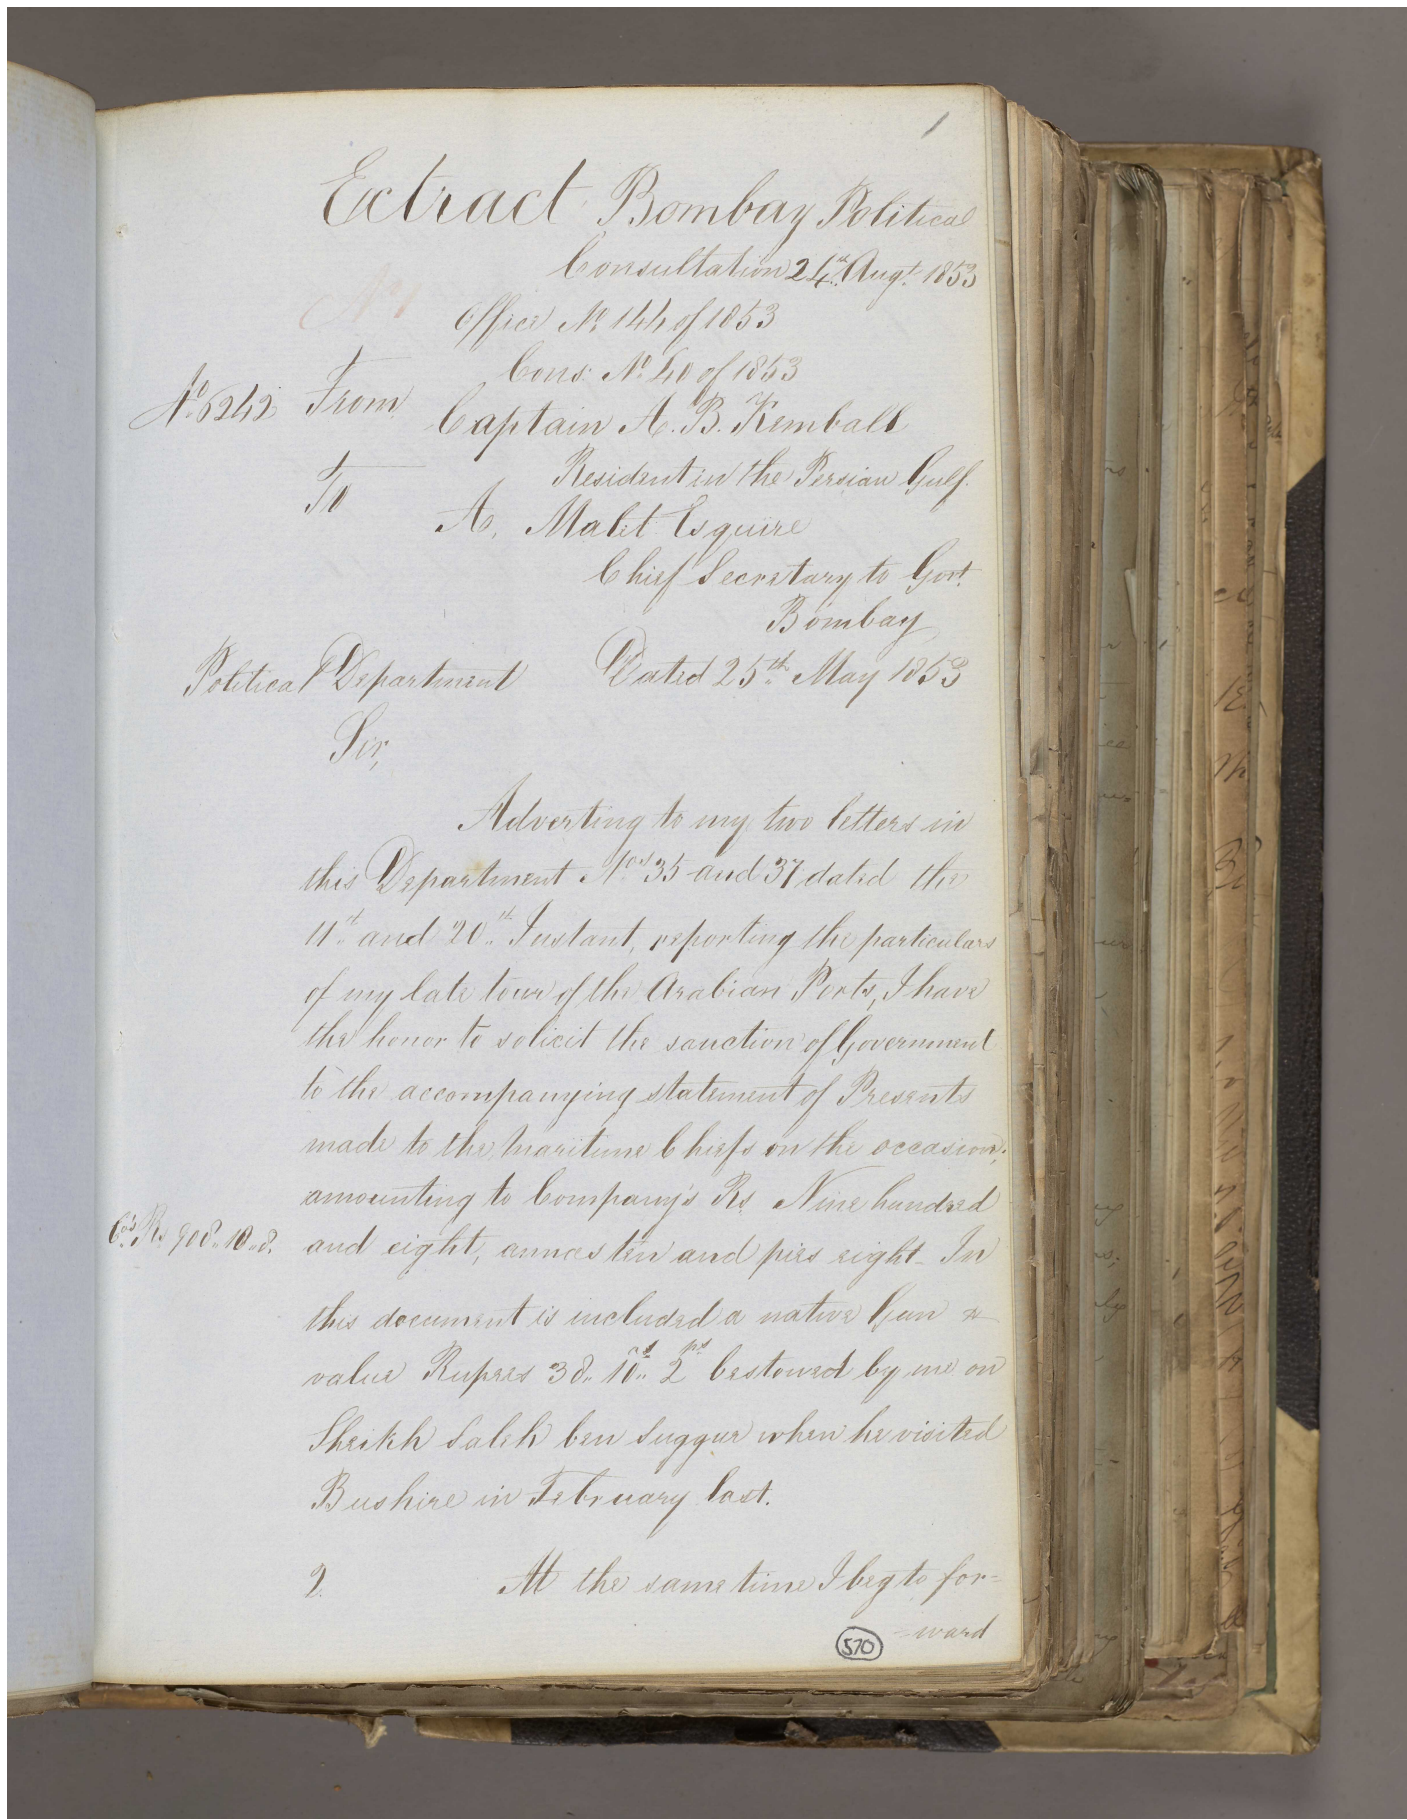 1
Extract Bombay Political
Consultation 24th Augt. 1853
No 1
Office No 144 of 1853
Cons: No 40 of 1853
No 6242 From
Captain A. B. Kemball
Resident in the Persian Gulf.
To
A. Malet Esquire
Chief Secretary to Govt.
Bombay
Political Department Dated 25th May 1853
Sir,
Adverting to my two letters in
this Department Nos 35 and 37 dated the
11th and 20th Instant, reporting the particulars
of my late tour of the Arabian Ports, I have
the honor to solicit the sanction of Government
to the accompanying statement of Presents
made to the Maritime Chiefs on the occasion;
amounting to Company's Rs. Nine hundred
Co's Rs. 908.. 10..8. and eight, annas ten and pies eight - In
this document is included a native Gun
value Rupees 38.. 10as.. 2ps bestowed by me on
Sheikh Saleh ben Suggur when he visited
Bushire in February last.
2. At the same time I beg to for-
-ward
570